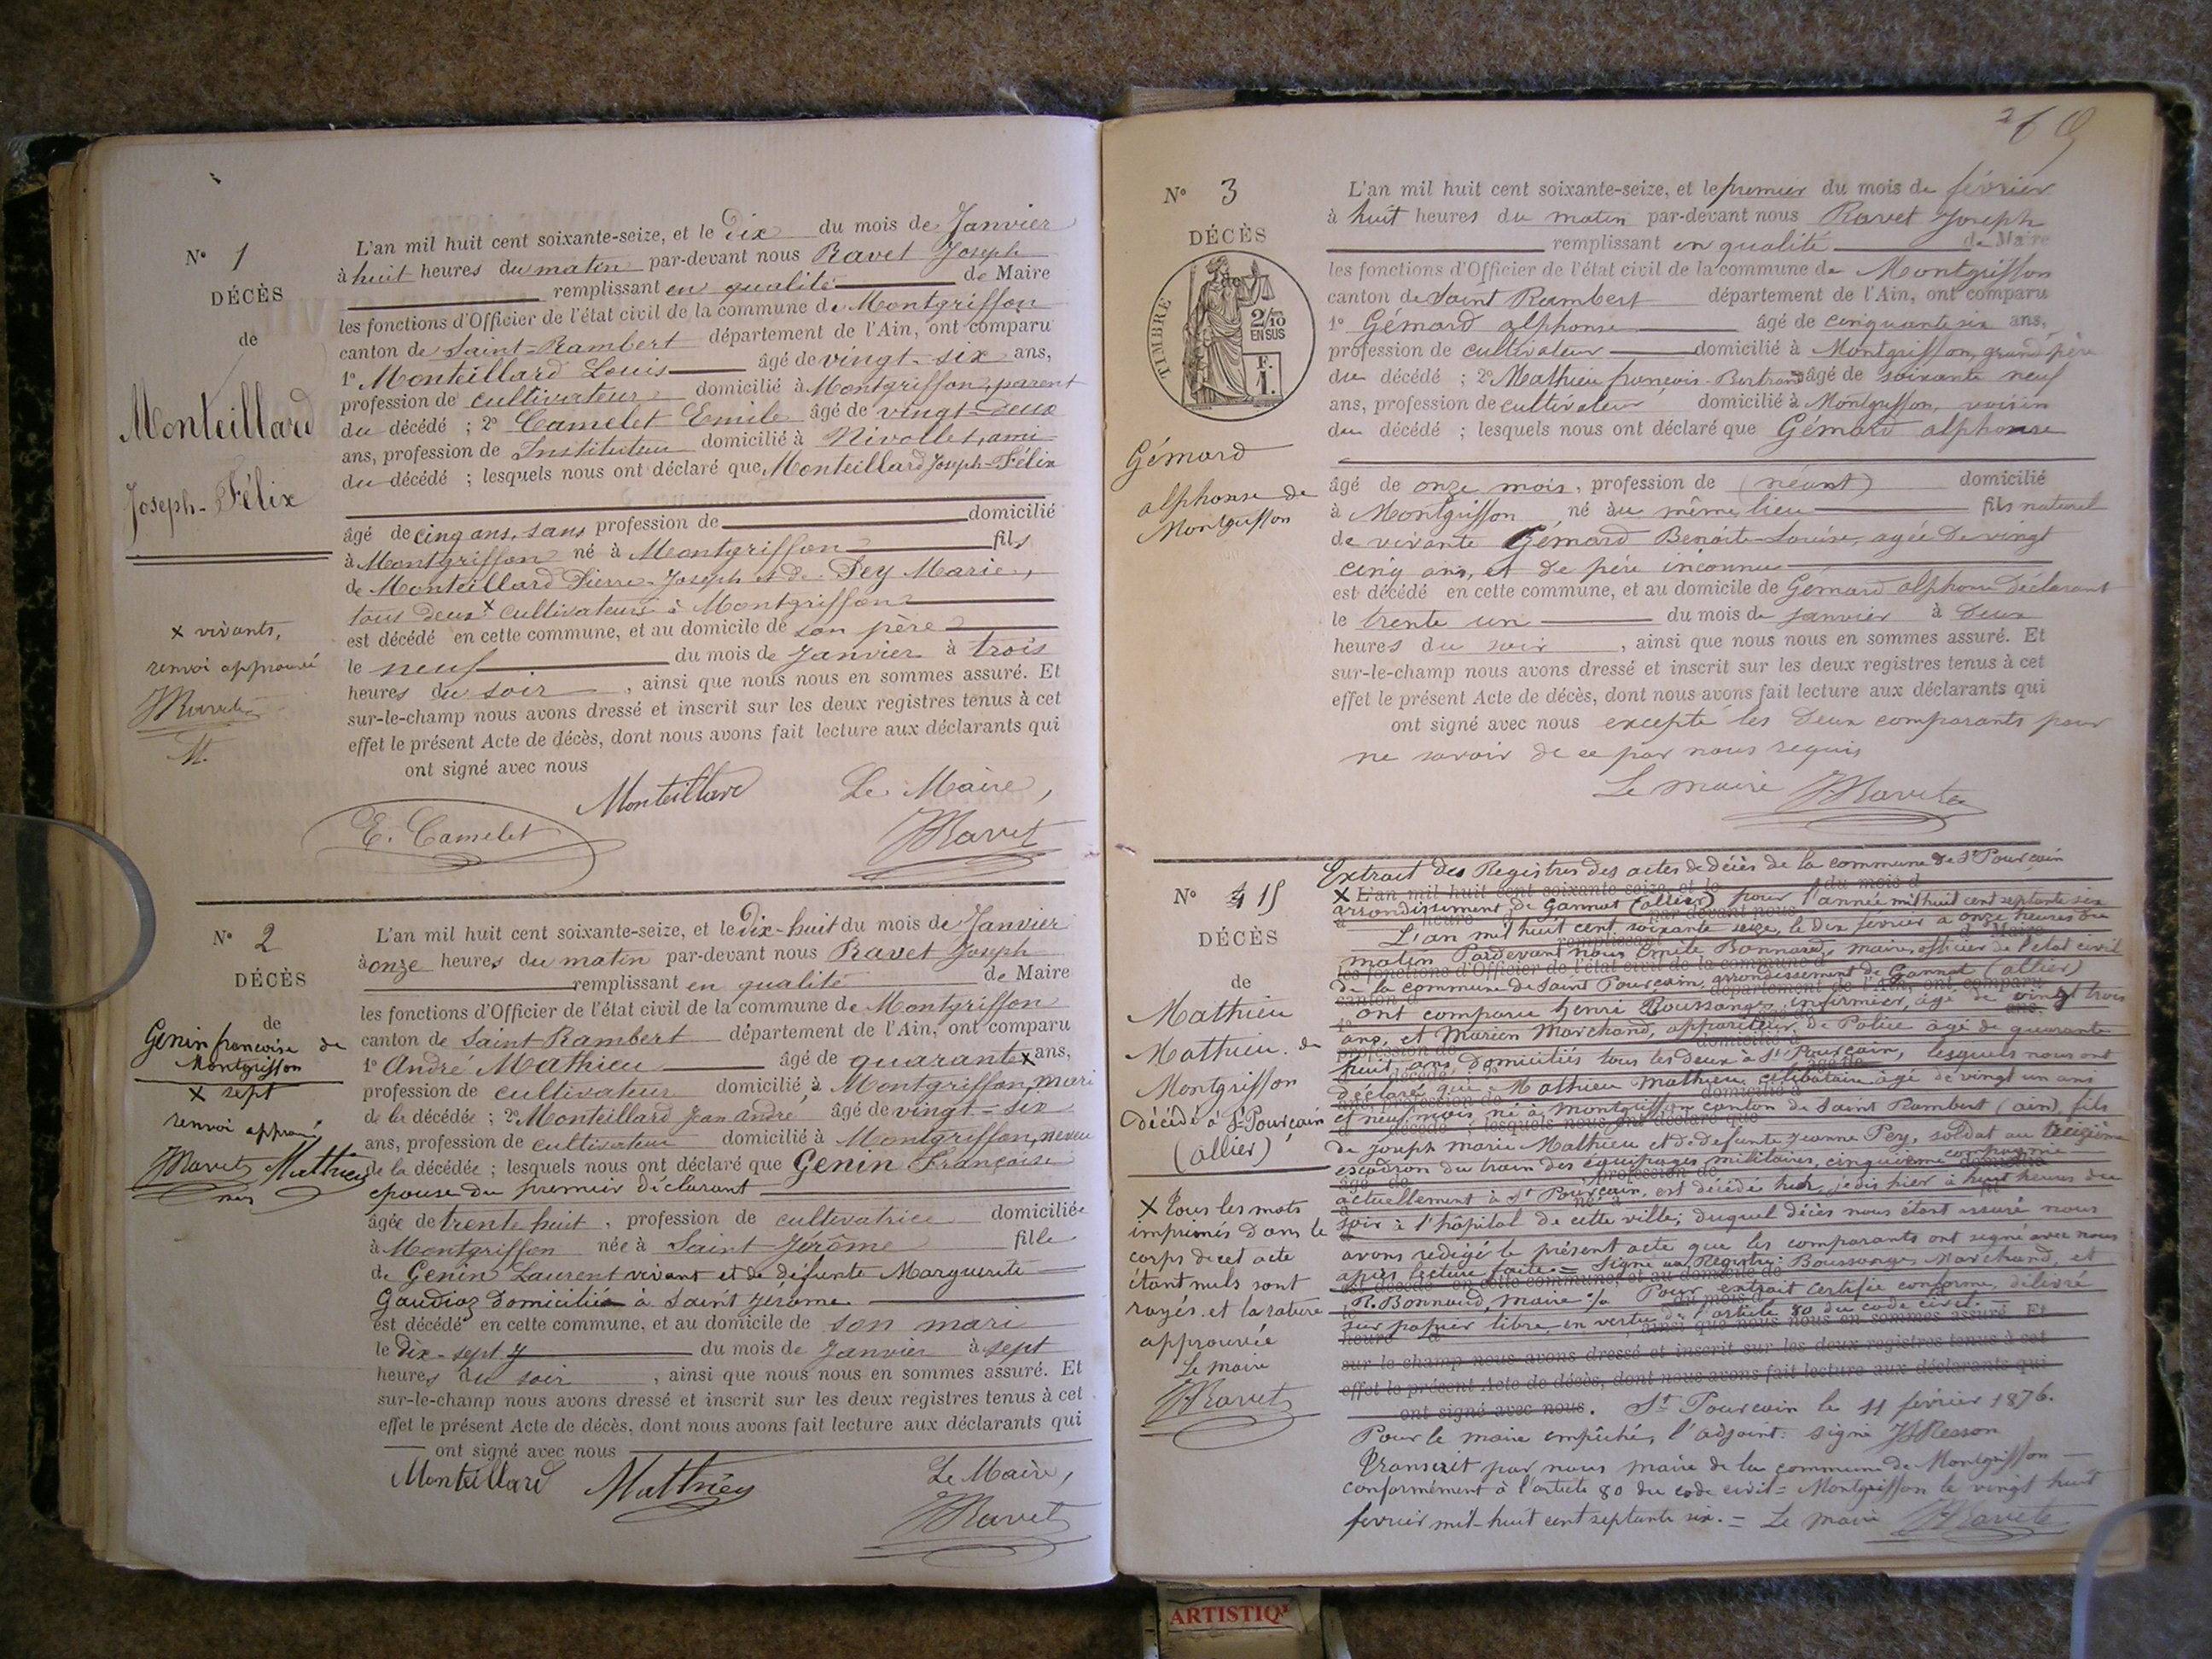 N° 1
DÉCÈS
de
Monteillard
Joseph-Félix
x vivants,
renvoi approuvé
JRavet
M.
L'an mil huit cent soixante-seize, et le dix du mois de Janvier
à huit heures du matin par-devant nous Ravet Joseph
remplissant en qualité de Maire
les fonctions d'Officier de l'état civil de la commune de Montgriffon
canton de Saint-Rambert département de l'Ain, ont comparu
1° Monteillard Louis âgé de vingt-six ans,
profession de cultivateur domicilié à Montgriffon, parent
du décédé ; 2° Camelet Emile âgé de vingt-deux
ans, profession de Instituteur domicilié à Nivollet, ami
du décédé ; lesquels nous ont déclaré que Monteillard Joseph-Félix
âgé de cinq ans, sans profession de domicilié
à Montgriffon né à Montgriffon fils
de Monteillard Pierre-Joseph et de Pey Marie,
tous deux x cultivateurs à Montgriffon
est décédé en cette commune, et au domicile de son père
le neuf du mois de Janvier à trois
heures du soir, ainsi que nous nous en sommes assuré. Et
sur-le-champ nous avons dressé et inscrit sur les deux registres tenus à cet
effet le présent Acte de décès, dont nous avons fait lecture aux déclarants qui
ont signé avec nous
Monteillard Le Maire,
E. Camelet JRavet
N° 2
DÉCÈS
de
Genin françoise de
Montgriffon
x sept
renvoi approuvé
JRavet Mathieu
L'an mil huit cent soixante-seize, et le Dix-huit du mois de Janvier
à onze heures du matin par-devant nous Ravet Joseph
remplissant en qualité de Maire
les fonctions d'Officier de l'état civil de la commune de Montgriffon
canton de Saint Rambert département de l'Ain, ont comparu
1° André Mathieu âgé de quarante x ans,
profession de cultivateur domicilié à Montgriffon, mari
de la décédée ; 2° Monteillard Jean André âgé de vingt-six
ans, profession de cultivateur domicilié à Montgriffon, neveu
de la décédée ; lesquels nous ont déclaré que Genin Françoise
epouse du premier déclarant
âgée de trente huit, profession de cultivatrice domiciliée
à Montgriffon née à Saint Jérôme fille
de Genin Laurent vivant et de défunte Marguerite
Gaudioz domiciliée à Saint Jérome
est décédé en cette commune, et au domicile de son mari
le dix-sept du mois de Janvier à sept
heures du soir, ainsi que nous nous en sommes assuré. Et
sur-le-champ nous avons dressé et inscrit sur les deux registres tenus à cet
effet le présent Acte de décès, dont nous avons fait lecture aux déclarants qui
ont signé avec nous
Monteillard Mathieu Le Maire,
JRavet
269
N° 3
DÉCÈS
TIMBRE
2/10
EN SUS
F.
1.
Gémard
alphonse de
Montgriffon
L'an mil huit cent soixante-seize, et le premier du mois de février
à huit heures du matin par-devant nous Ravet Joseph
remplissant en qualité de Maire
les fonctions d'Officier de l'état civil de la commune de Montgriffon
canton de Saint Rambert département de l'Ain, ont comparu
1° Gémard alphonse âgé de cinquante six ans,
profession de cultivateur domicilié à Montgriffon, grand père
du décédé ; 2° Mathieu françois-Bertrand âgé de soixante neuf
ans, profession de cultivateur domicilié à Montgriffon, voisin
du décédé ; lesquels nous ont déclaré que Gémard alphonse
âgé de onze mois, profession de (néant) domicilié
à Montgriffon né au même lieu fils naturel
de vivante Gémard Benoite-Louise, agée de vingt
cinq ans, et de père inconnu
est décédé en cette commune, et au domicile de Gémard alphonse déclarant
le trente un du mois de janvier à deux
heures du soir, ainsi que nous nous en sommes assuré. Et
sur-le-champ nous avons dressé et inscrit sur les deux registres tenus à cet
effet le présent Acte de décès, dont nous avons fait lecture aux déclarants qui
ont signé avec nous excepté les deux comparants pour
ne savoir de ce par nous requis
Le maire JRavet
N° 4
DÉCÈS
de
Mathieu
Mathieu de
Montgriffon
décédé à St Pourçain
(allier)
x tous les mots
imprimés dans le
corps de cet acte
étant nuls sont
rayés et la rature
approuvée
Le maire
JRavet
Extrait des Registres des actes de décès de la commune de St Pourçain
arrondissement de Gannat (allier) pour l'année mil huit cent septante six
L'an mil huit cent soixante seize, le dix février à onze heures du
matin Pardevant nous Emile Bonnard, maire, officier de l'état civil
de la commune de Saint Pourçain arrondissement de Gannat (allier)
ont comparu henri Boussange, infirmier, âgé de vingt trois
ans, et Marien Marchand, appariteur de Police âgé de quarante
huit ans, domiciliés tous les deux à St Pourçain, lesquels nous ont
déclaré que Mathieu Mathieu célibataire âgé de vingt un ans
et neuf mois né à Montgriffon canton de Saint Rambert (ain) fils
de Joseph marie Mathieu et de defunte Jeanne Pey, soldat au treizième
escadron du train des équipages militaires, cinquième compagnie
actuellement à St Pourçain, est décédé hier, je dis hier à huit heures du
soir à l'hôpital de cette ville; duquel décès nous étant assuré nous
avons redigé le présent acte que les comparants ont signé avec nous
après lecture faite = Signé au Registre: Boussange, Marchand, et
R. Bonnard, maire Pour extrait certifié conforme, délivré
sur papier libre en vertu de l'article 80 du code civil.
sur-le-champ nous avons dressé et inscrit sur les deux registres tenus à cet
effet le présent Acte de décès, dont nous avons fait lecture aux déclarants qui
ont signé avec nous. St Pourçain le 11 février 1876.
Pour le maire empêché, l'adjoint: signé
Transcrit par nous maire de la commune de Montgriffon
conformément à l'article 80 du code civil = Montgriffon le vingt huit
fevrier mil-huit cent septante six. = Le maire JRavet
ARTISTIQ